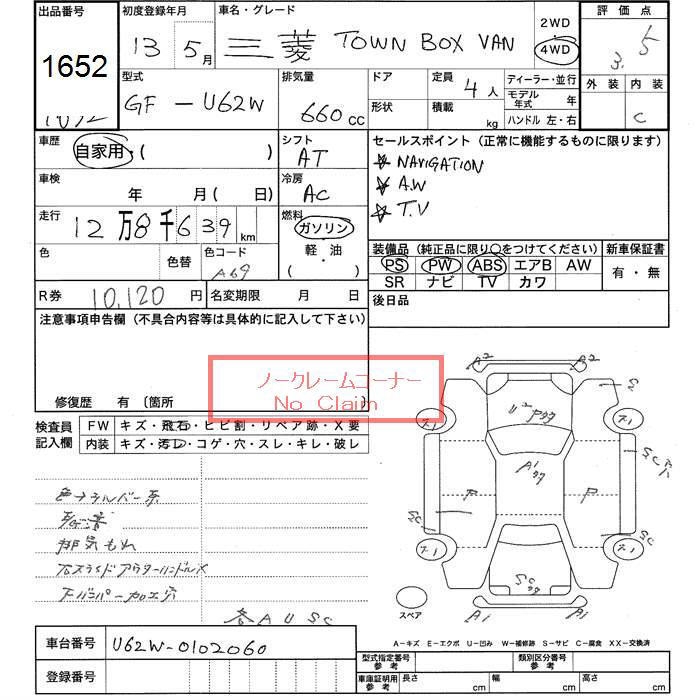 出品番号 初度登録年月 車名・グレード 2WD 評価点
1652 13 5月 三菱 TOWN BOX VAN 4WD 3.5
型式 排気量 ドア 定員 ディーラー・並行 外装 内装
GF-U62W 660cc 4人 モデル年式 年 C
形状 積載 kg ハンドル 左・右
車歴 自家用・( ) シフト AT セールスポイント(正常に機能するものに限ります)
NAVIGATION
車検 年 月( 日) 冷房 AC A.W
T.V
走行 12万8千639km 燃料 ガソリン
軽・油
( )
色 色替 色コード A69
装備品(純正品に限り○をつけてください) 新車保証書
PS PW ABS エアB AW 有・無
SR ナビ TV カワ
R券 10,120円 名変期限 月 日 後日品
注意事項申告欄(不具合内容等は具体的に記入して下さい)
ノークレームコーナー
No Claim
修復歴 有〔箇所
検査員記入欄 FW キズ・飛石・ヒビ割・リペア跡・X要
内装 キズ・汚レ・コゲ・穴・スレ・キレ・破レ
A2 A2
U2
A1
F P
SC
SC
SC
A1 A1
排気もれ
下バンパー加工穴
各AUSC
スペア
A-キズ E-エクボ U-凹み W-補修跡 S-サビ C-腐食 XX-交換済
車台番号 U62W-0102060
登録番号
型式指定番号 参考 類別区分番号 参考
車庫証明用 参考 長さ cm 幅 cm 高さ cm